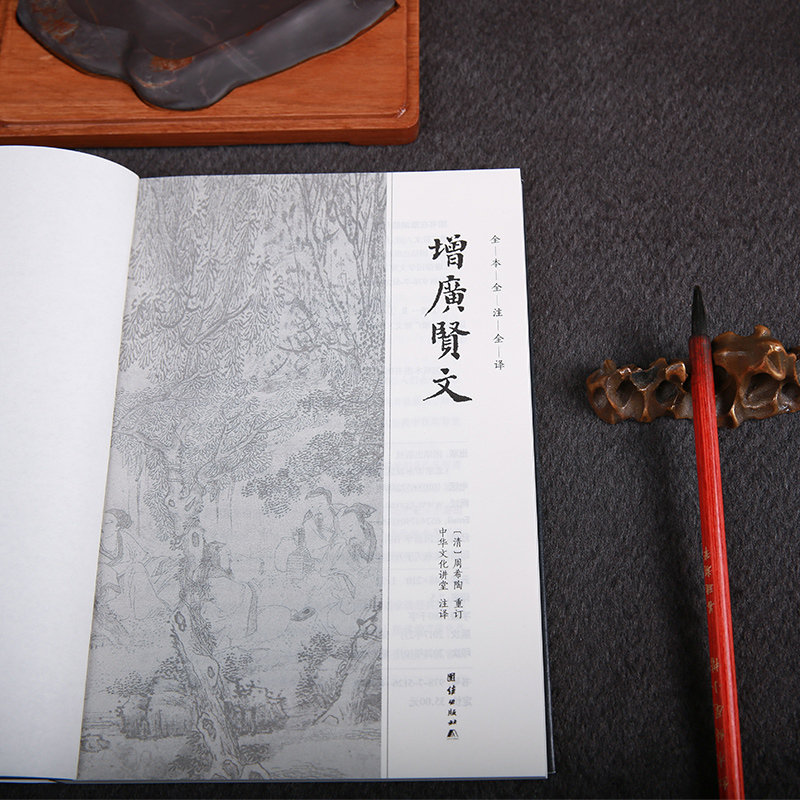 全本全注全译
增廣賢文
〔清〕周希陶 重订
中华文化讲堂 注译
团结出版社